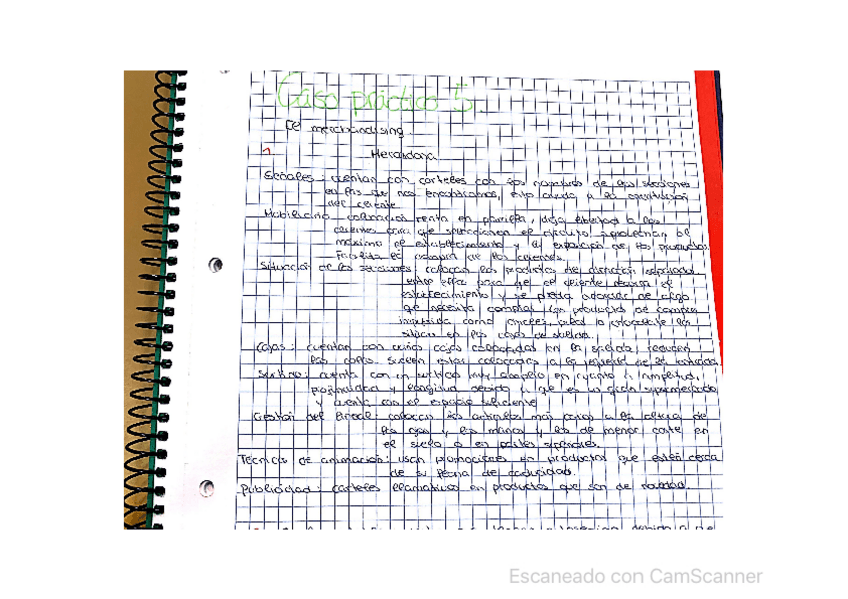 Caso práctico 5.
El merchandising.
1
Mercadona
Señales: cuentan con carteles con los nombres de las secciones
en las que nos encontramos, esto ayuda a la orientación
del cliente
Mobiliario: colocación recta en parrilla, deja libertad a los
clientes para que seleccionen el circuito, aprovechan al
máximo el establecimiento y la exposición de los productos.
Facilita el de los clientes.
Situación de las secciones: colocan los productos de
entre ellos para que el cliente recorra el
establecimiento y se pueda de algo
que necesita comprar. Los productos de compra
impulsiva como chicles, o los
sitúan en las cajas de
Cajas: cuentan con varias cajas colocadas en la salida, reducen
las colas. Suelen estar colocadas a la de la entrada.
Surtido: cuenta con un surtido muy amplio en cuanto a amplitud,
profundidad y longitud debido a que es un gran supermercado
y cuenta con el espacio suficiente
Gestión del lineal: colocan los artículos más caros a la altura de
los ojos y las manos y los de menor coste en
el suelo o en partes superiores.
Técnica de animación: usan promociones en productos que estén cerca
de su fecha de caducidad.
Publicidad: carteles llamativos en productos que son de
Escaneado con CamScanner